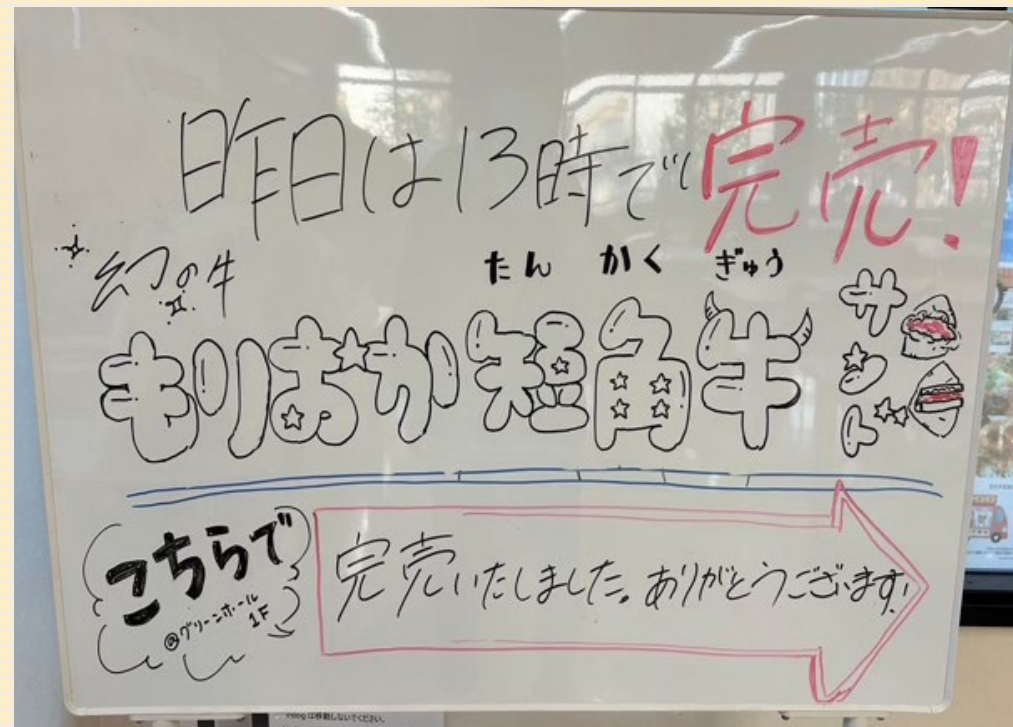 昨日は13時で完売!
幻の牛
たん かく ぎゅう
もりおか短角牛
サンド
こちらで
@グリーンホール
1F
完売いたしました。ありがとうございます!
は移動しないでください。